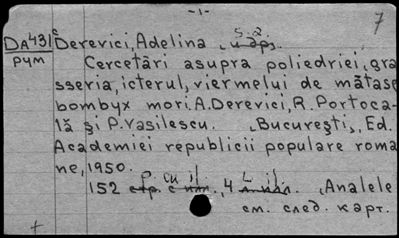 -1-
7
DA431c Derevici, Adelina ș.a.
и др.
РУМ
Cercetări asupra poliedriei, gra
sseria, icterul, viermelui de mătase
bombyx mori. A. Derevici, R. Portoca-
lă și P. Vasilescu. București, Ed.
Academiei republicii populare roma
ne, 1950.
p. cu il. L. il.
152 стр. с илл., 4 л. илл. Analele
см. след. карт.
+